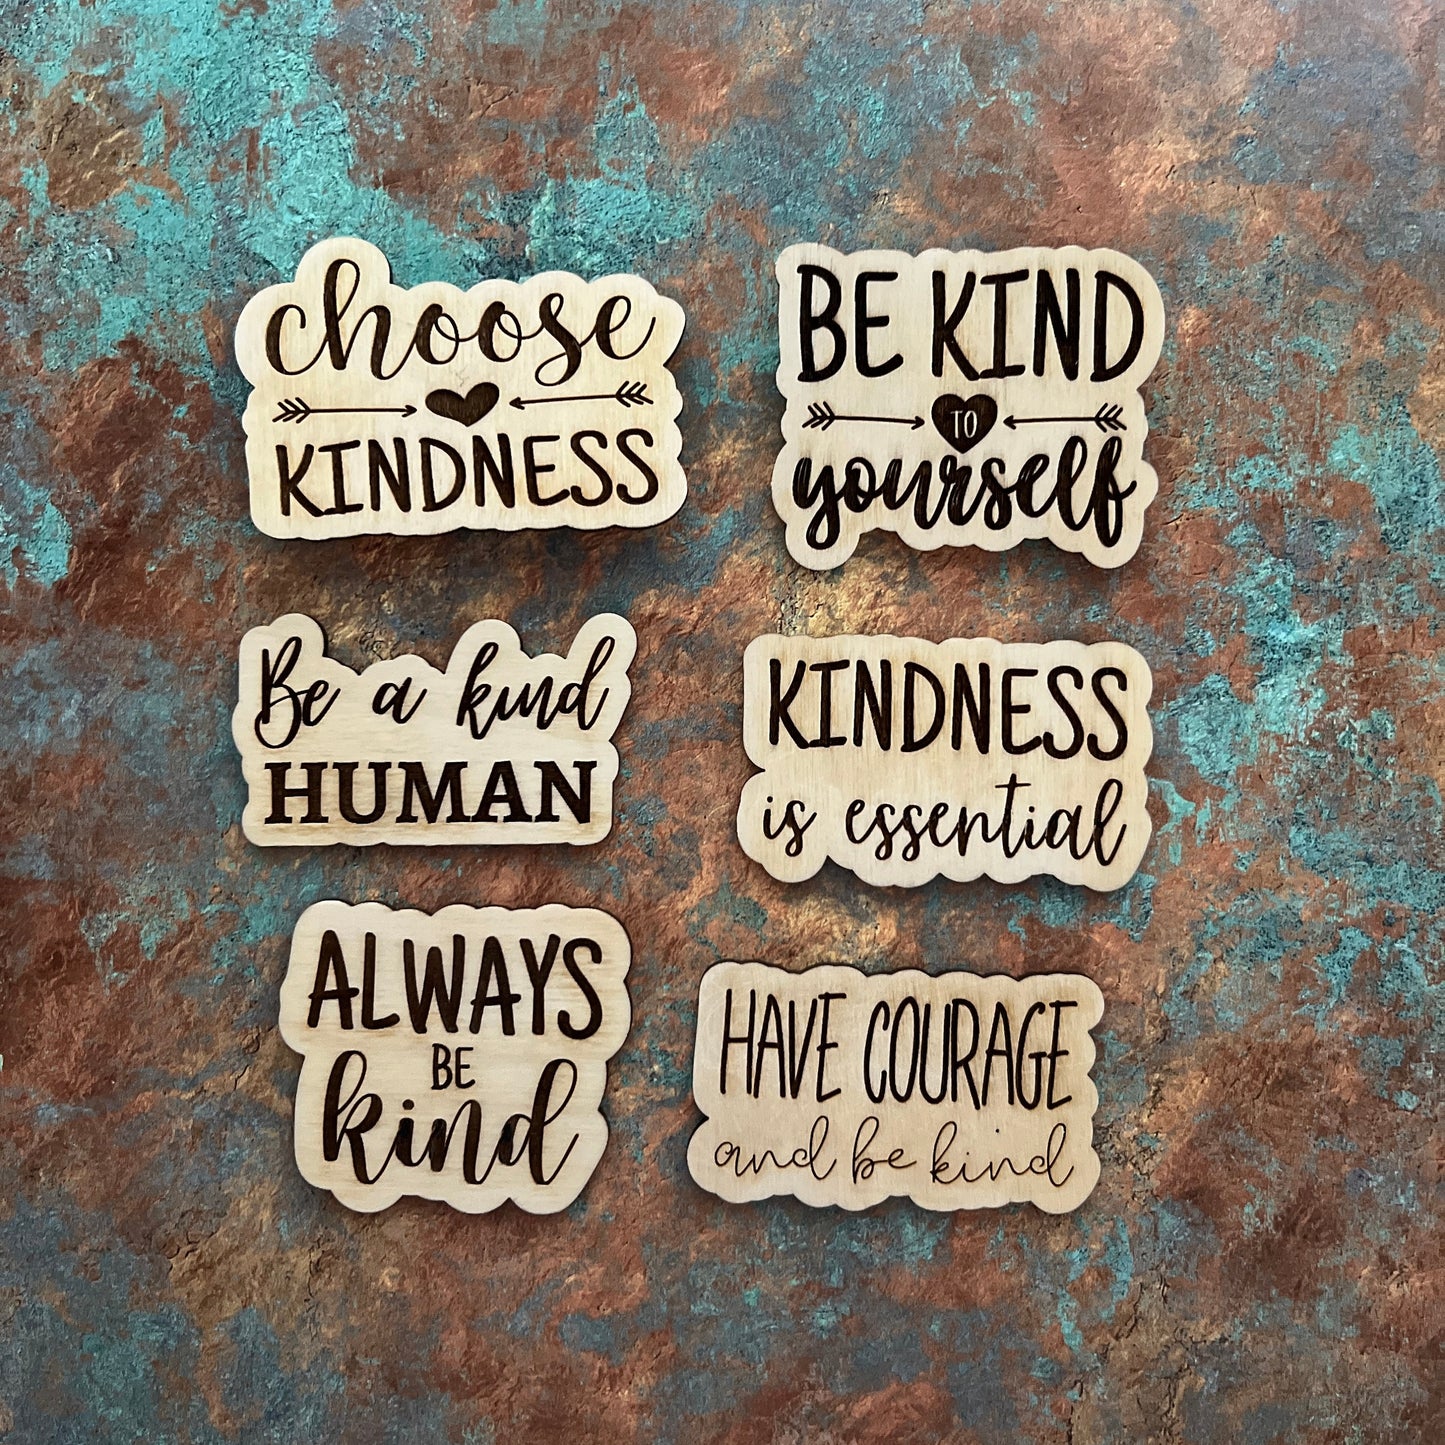 choose
KINDNESS
BE KIND
TO
yourself
Be a kind
HUMAN
KINDNESS
is essential
ALWAYS
BE
kind
HAVE COURAGE
and be kind